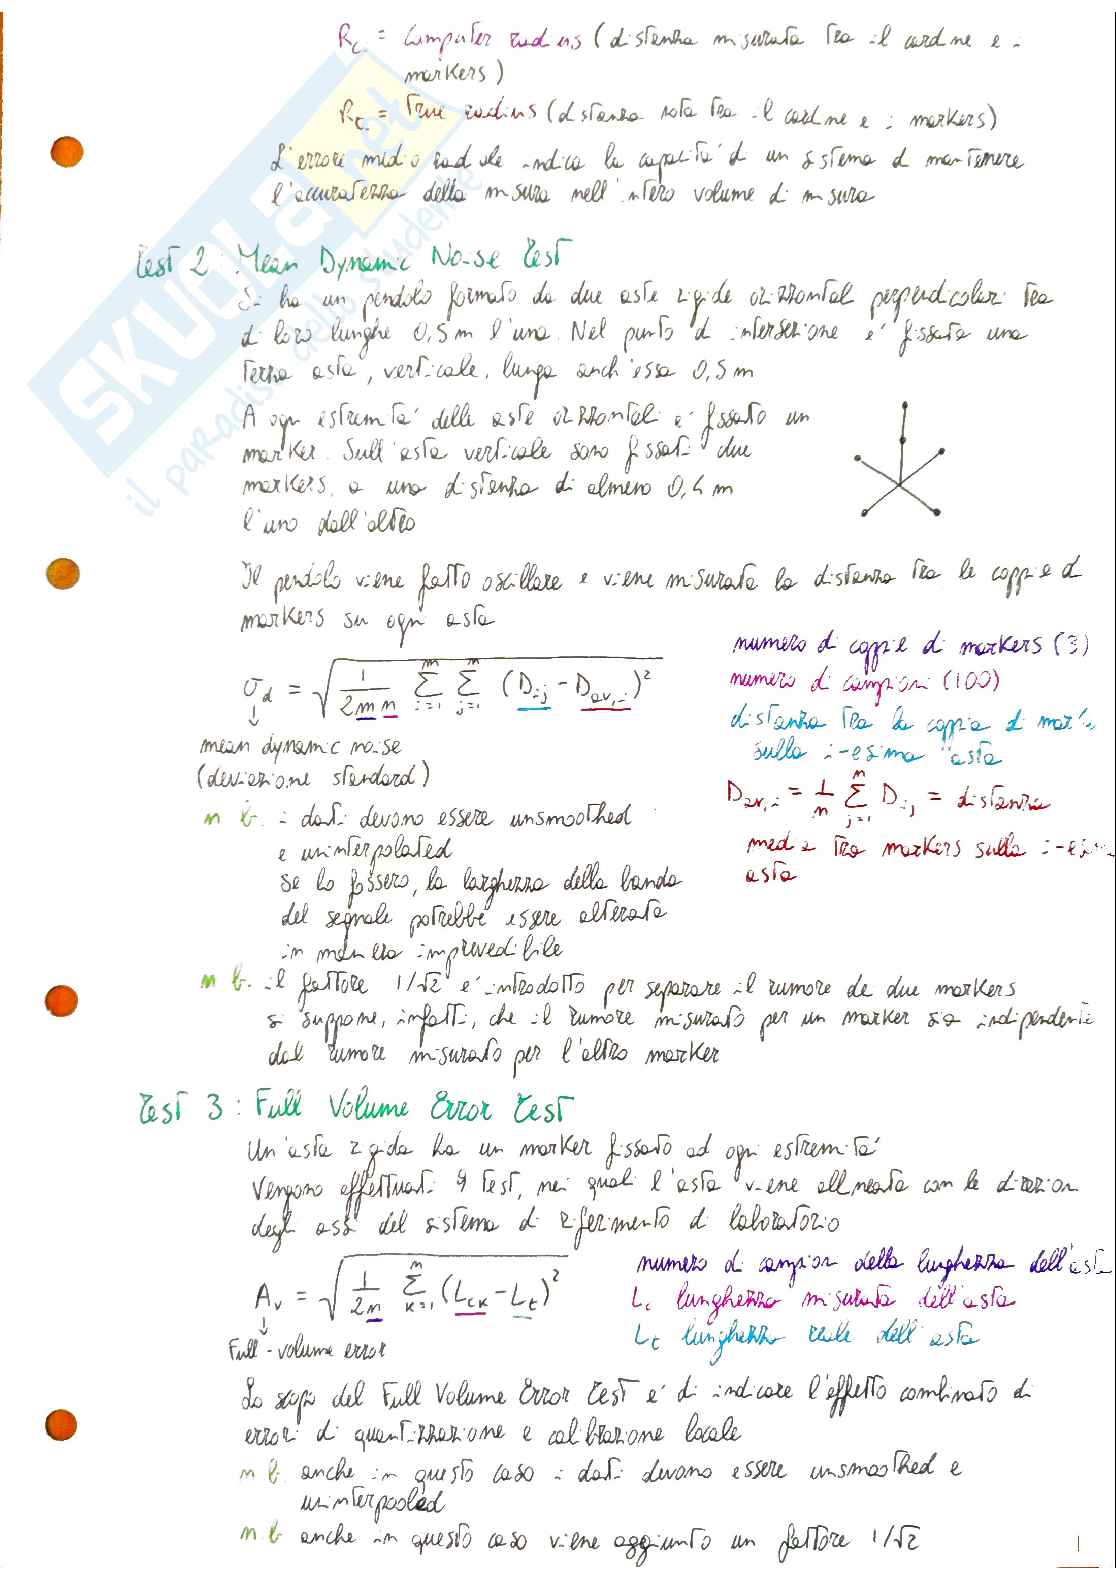 Rc = Computer radius (distanza misurata tra il cardine e i
markers)
Rt = True radius (distanza nota tra il cardine e i markers)
L'errore medio radiale indica la capacità di un sistema di mantenere
l'accuratezza della misura nell'intero volume di misura
Test 2: Mean Dynamic Noise Test
Si ha un pendolo formato da due aste rigide orizzontali perpendicolari tra
di loro lunghe 0,5 m l'una. Nel punto di intersezione è fissata una
terza asta, verticale, lunga anch'essa 0,5 m
A ogni estremità delle aste orizzontali è fissato un
marker. Sull'asta verticale sono fissati due
markers, a una distanza di almeno 0,4 m
l'uno dall'altro
Il pendolo viene fatto oscillare e viene misurata la distanza tra le coppie di
markers su ogni asta
σd = √(1/(2mn) Σ(i=1..m) Σ(j=1..n) (Dij - Dav,i)²)
mean dynamic noise
(deviazione standard)
numero di coppie di markers (3)
numero di campioni (100)
distanza tra la coppia di mar
sulla i-esima asta
Dav,i = 1/n Σ(j=1..n) Dij = distanza
media tra markers sulla i-esim
asta
n.b. i dati devono essere unsmoothed
e uninterpolated
Se lo fossero, la larghezza della banda
del segnale potrebbe essere alterata
in maniera imprevedibile
n.b. il fattore 1/√2 è introdotto per separare il rumore dei due markers
si suppone, infatti, che il rumore misurato per un marker sia indipendente
dal rumore misurato per l'altro marker
Test 3: Full Volume Error Test
Un'asta rigida ha un marker fissato ad ogni estremità
Vengono effettuati 9 test, nei quali l'asta viene allineata con le direzioni
degli assi del sistema di riferimento di laboratorio
Av = √(1/(2n) Σ(k=1..n) (Lck - Lt)²)
Full-volume error
numero di campioni della lunghezza dell'asta
Lc lunghezza misurata dell'asta
Lt lunghezza reale dell'asta
Lo scopo del Full Volume Error Test è di indicare l'effetto combinato di
errori di quantizzazione e calibrazione locale
n.b. anche in questo caso i dati devono essere unsmoothed e
uninterpooled
n.b. anche in questo caso viene aggiunto un fattore 1/√2
1
SKUOLA.net
il paradiso dello studente